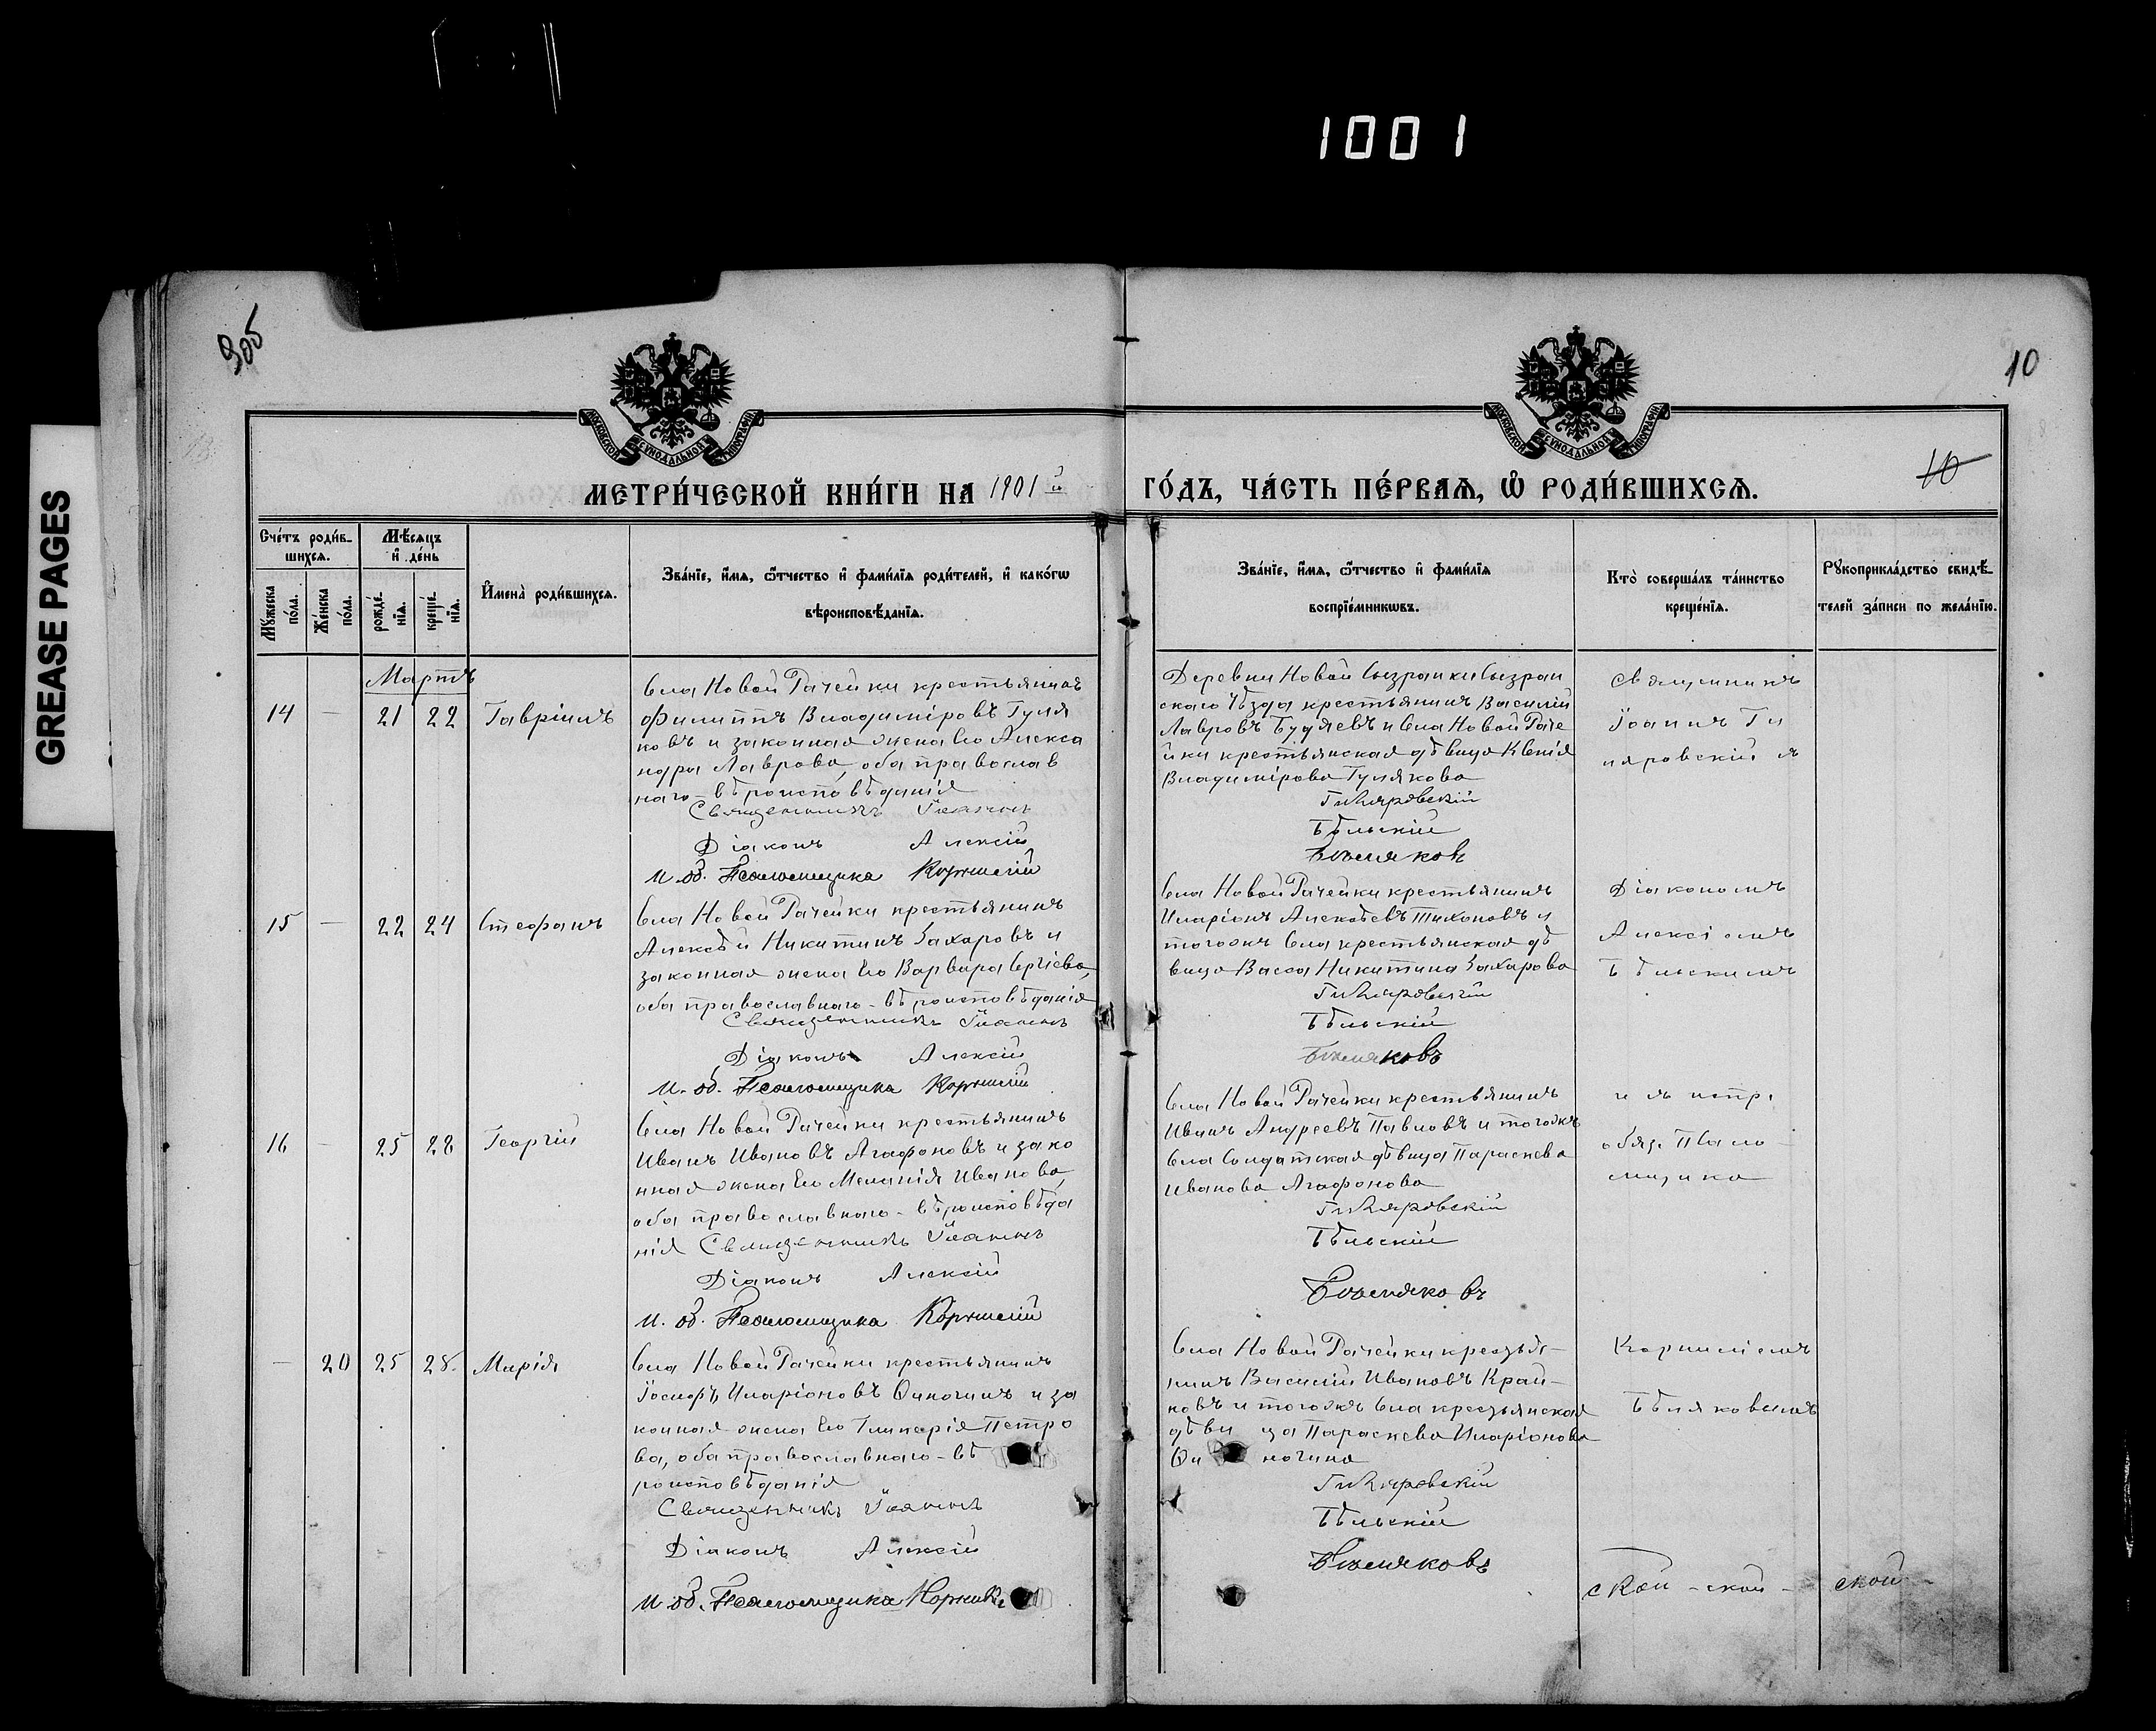 1001
GREASE PAGES
305
10
МОСКОВСКОЙ СѴНОДАЛЬНОЙ ТИПОГРАФІИ
МОСКОВСКОЙ СѴНОДАЛЬНОЙ ТИПОГРАФІИ
10
МЕТРИ́ЧЕСКОЙ КНИ́ГИ НА 1901 й
ГО́ДЪ, ЧА́СТЬ ПЕ́РВАѦ, Ѡ҆ РОДИ́ВШИХСѦ.
Сче́тъ роди́в-
шихсѧ.
Мѣ́сѧцъ
и҆ де́нь
Мꙋ́жеска
по́ла.
Же́нска
по́ла.
рожде́-
нїѧ.
креще́-
нїѧ.
И҆мена̀ роди́вшихсѧ.
Зва́нїе, и҆́мѧ, ѻ҆́тчество и҆ фами́лїѧ роди́телей, и҆ како́гѡ
вѣроисповѣ́данїѧ.
Зва́нїе, и҆́мѧ, ѻ҆́тчество и҆ фами́лїѧ
воспрїе́мникѡвъ.
Кто̀ соверша́лъ та́инство
креще́нїѧ.
Рꙋкоприкла́дство свидѣ́-
телей за́писи по жела́нїю.
Мартъ
14 — 21 22 Гавріилъ
Села Новой Рачейки крестьянинъ
Филиппъ Владиміровъ Гуля
ковъ и законная жена его Алекса
ндра Лаврова, оба православ
наго-вѣроисповѣданія
Священникъ Іоаннъ
Діаконъ Алексій
И. об. Псаломщика Корнилій
Деревни Новой Сызранки Сызран
скаго Уѣзда крестьянинъ Василій
Лавровъ Будяевъ и Села Новой Раче
йки крестьянская дѣвица Ксенія
Владимірова Гулякова
Гиляровскій
Бѣльскій
Бѣляковъ
Священникъ
Іоаннъ Ги
ляровскій
15 — 22 24 Стефанъ
Села Новой Рачейки крестьянинъ
Алексѣй Никитинъ Захаровъ и
законная жена его Варвара Сергіева,
оба православнаго-вѣроисповѣданія
Священникъ Іоаннъ
Діаконъ Алексій
И. об. Псаломщика Корнилій
Села Новой Рачейки крестьянинъ
Иларіонъ Алексѣевъ Тихоновъ и
тогожъ Села крестьянская дѣ
вица Васса Никитина Захарова
Гиляровскій
Бѣльскій
Бѣляковъ
Діакономъ
Алексіемъ
Бѣльскимъ
16 — 25 28 Георгій
Села Новой Рачейки крестьянинъ
Иванъ Ивановъ Агафоновъ и зако
нная жена его Меланія Иванова,
оба православнаго-вѣроисповѣда
нія Священникъ Іоаннъ
Діаконъ Алексій
И. об. Псаломщика Корнилій
Села Новой Рачейки крестьянинъ
Иванъ Андреевъ Павловъ и тогожъ
Села Солдатская дѣвица Параскева
Иванова Агафонова
Гиляровскій
Бѣльскій
Бѣляковъ
обяз. Псало-
мщика
— 20 25 28. Марія
Села Новой Рачейки крестьянинъ
Іосифъ Иларіоновъ Финогинъ и за
конная жена его Гликерія Петро
ва, оба православнаго-вѣ
роисповѣданія
Священникъ Іоаннъ
Діаконъ Алексій
И об. Псаломщика Корнилій
Села Новой Рачейки крестья-
нинъ Василій Ивановъ Край-
новъ и тогожъ Села крестьянская
дѣвица Параскева Иларіонова
Финогина
Гиляровскій
Бѣльскій
Бѣляковъ
Корниліемъ
Бѣляковымъ
ской -ской- ской-